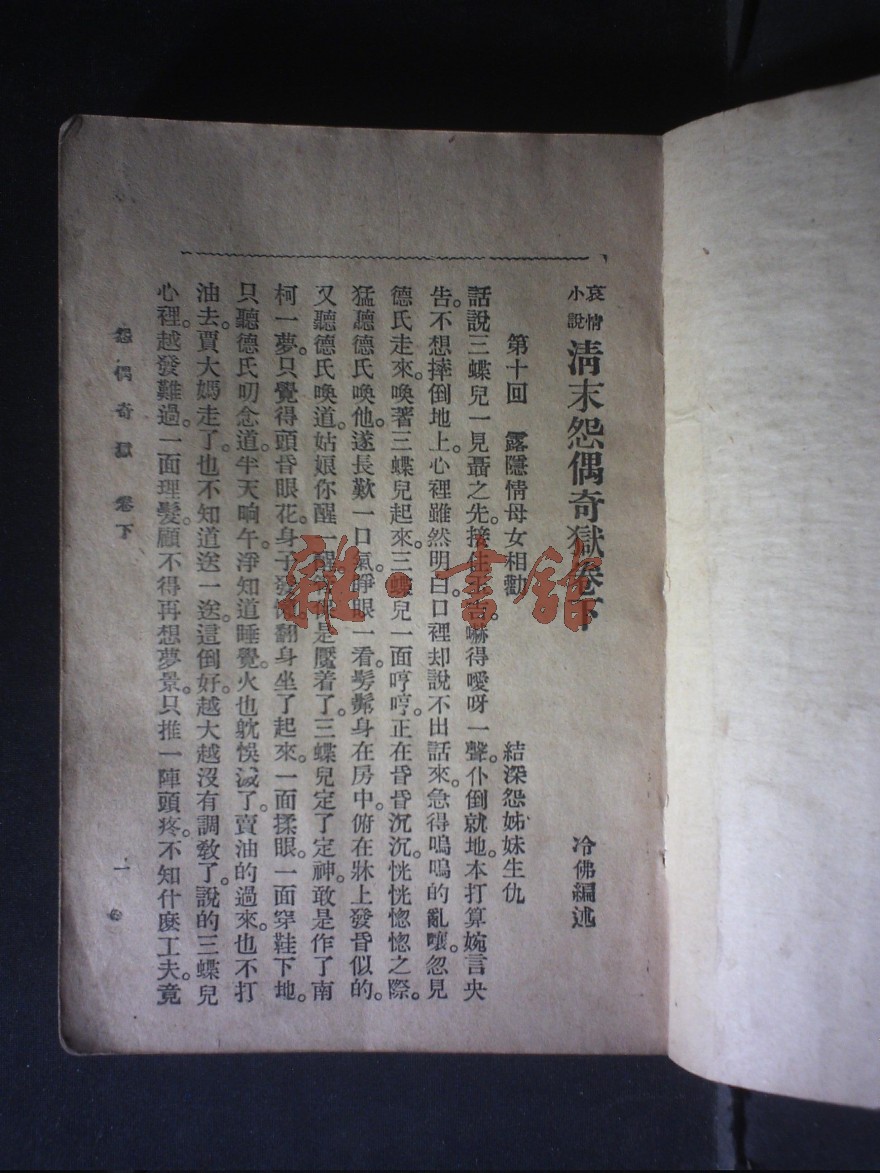 哀情小說 清末怨偶奇獄卷下
冷佛編述
第十回 露隱情母女相勸 結深怨姊妹生仇
話說三蝶兒一見聶之先、接住玉吉。嚇得噯呀一聲。仆倒就地。本打算婉言央
告。不想摔倒地上。心裡雖然明白。口裡却說不出話來。急得嗚嗚的亂嚷。忽見
德氏走來。喚著三蝶兒起來。三蝶兒一面哼哼。正在昏昏沉沉。恍恍惚惚之際。
猛聽德氏喚他。遂長歎一口氣。睜眼一看。髣髴身在房中。俯在牀上發昏似的。
又聽德氏喚道。姑娘你醒一醒。是魘着了。三蝶兒定了定神。敢是作了南
柯一夢。只覺得頭昏眼花。身子發。翻身坐了起來。一面揉眼。一面穿鞋下地。
只聽德氏叨念道。半天晌午。淨知道睡覺。火也躭悞滅了。賣油的過來。也不打
油去。賈大媽走了。也不知道送一送。這倒好。越大越沒有調敎了。說的三蝶兒
心裡越發難過。一面理髮。顧不得再想夢景。只推一陣頭疼。不知什麽工夫。竟
怨偶奇獄 卷下
一
雜·書館